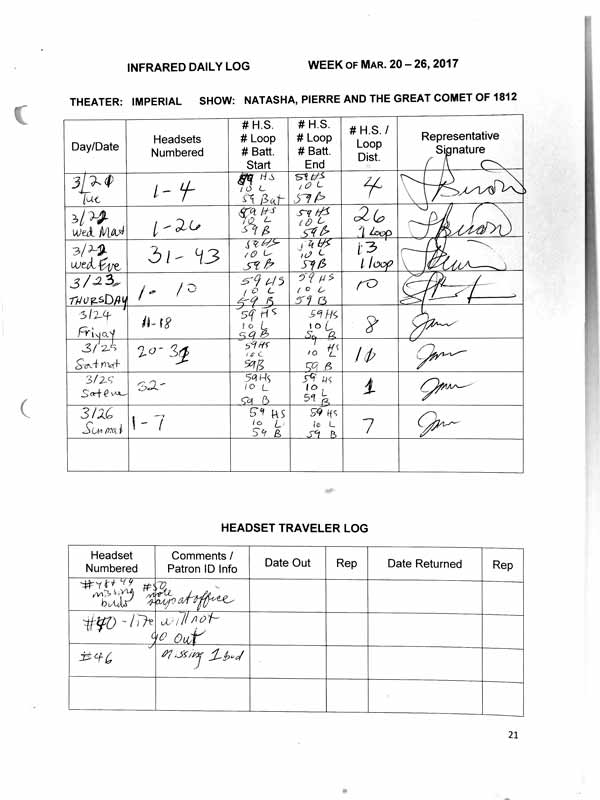 INFRARED DAILY LOG WEEK OF MAR. 20 – 26, 2017
THEATER: IMPERIAL SHOW: NATASHA, PIERRE AND THE GREAT COMET OF 1812
Day/Date Headsets Numbered # H.S. # Loop # Batt. Start # H.S. # Loop # Batt. End # H.S. / Loop Dist. Representative Signature
3/21 Tue 1-4 59 HS 10 L 59 Bat 59 HS 10 L 59 B 4
3/22 Wed Mat 1-26 59 HS 10 L 59 B 59 HS 10 L 59 B 26 1 Loop
3/22 Wed Eve 31-43 59 HS 10 L 59 B 59 HS 10 L 59 B 13 1 loop
3/23 THURSDAY 1- 10 59 HS 10 L 59 B 59 HS 10 L 59 B 10
3/24 11-18 59 HS 10 L 59 B 59 HS 10 L 59 B 8
3/25 Satmat 20-31 59 HS 59 B HS 10 L 59 B 11
3/25 Sateve 32- 59 HS 10 L 59 B 59 HS 10 L 59 B 1
3/26 Sunmat 1-7 59 HS 10 L 59 B 59 HS 10 L 59 B 7
HEADSET TRAVELER LOG
Headset Numbered Comments / Patron ID Info Date Out Rep Date Returned Rep
missing buds #50 office
will not
go out
#46 missing 1 bud
21